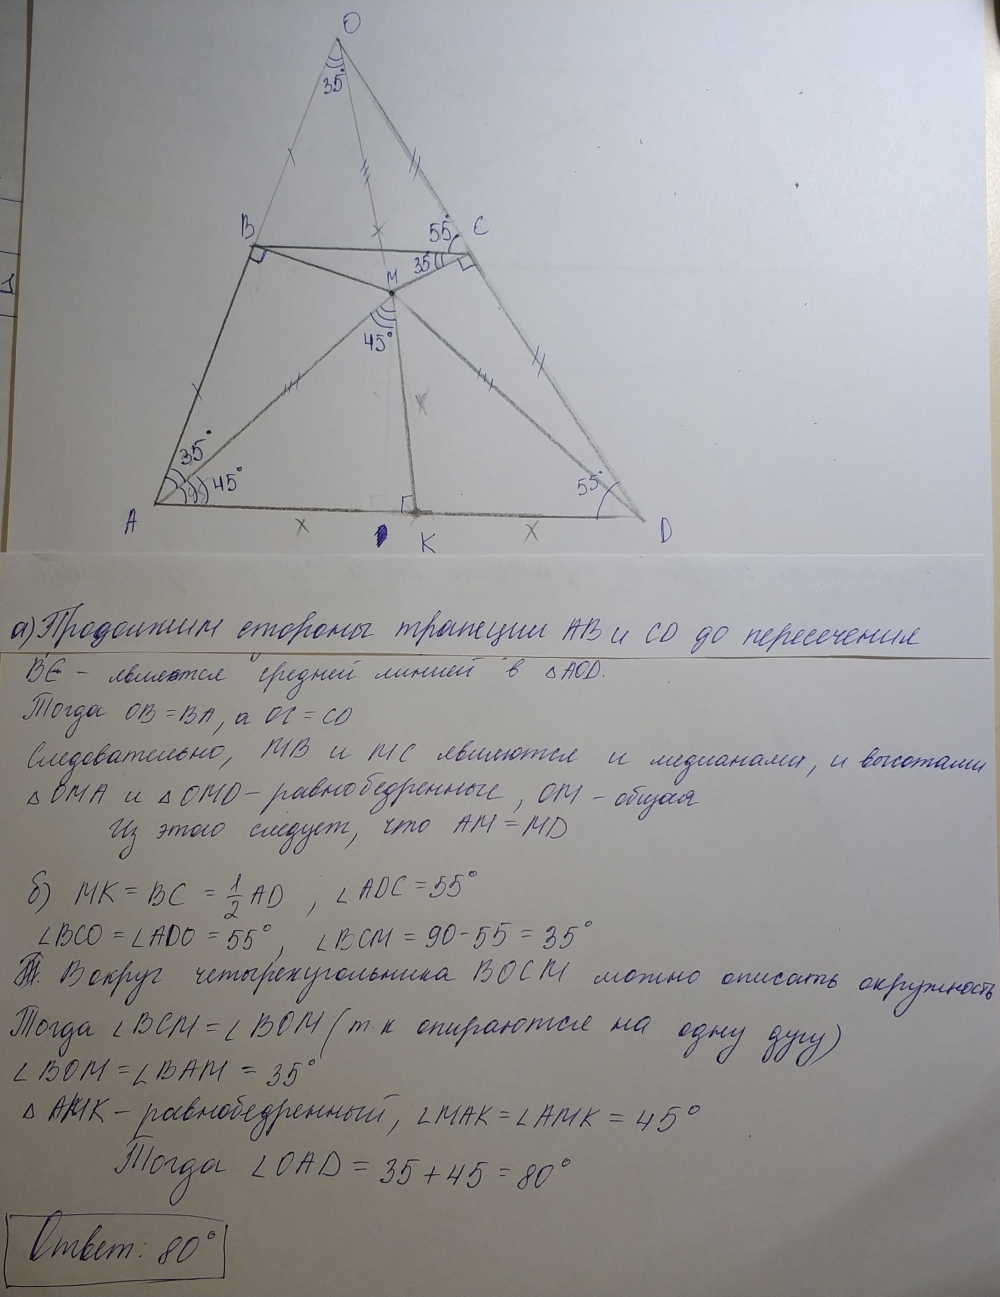 O
35°
B
55°
C
35°
M
45°
35°
45°
55°
A
K
D
а) Продолжим стороны трапеции AB и CD до пересечения
BC - является средней линией в △AOD.
Тогда OB = BA, а OC = CD
Следовательно, MB и MC являются и медианами, и высотами
△OMA и △OMD - равнобедренные, OM - общая
Из этого следует, что AM = MD
б) MK = BC = 1/2 AD, ∠ADC = 55°
∠BCO = ∠ADO = 55°, ∠BCM = 90-55 = 35°
Вокруг четырехугольника BOCM можно описать окружность
Тогда ∠BCM = ∠BOM (т.к опираются на одну дугу)
∠BOM = ∠BAM = 35°
△AMK - равнобедренный, ∠MAK = ∠AMK = 45°
Тогда ∠OAD = 35+45 = 80°
Ответ: 80°